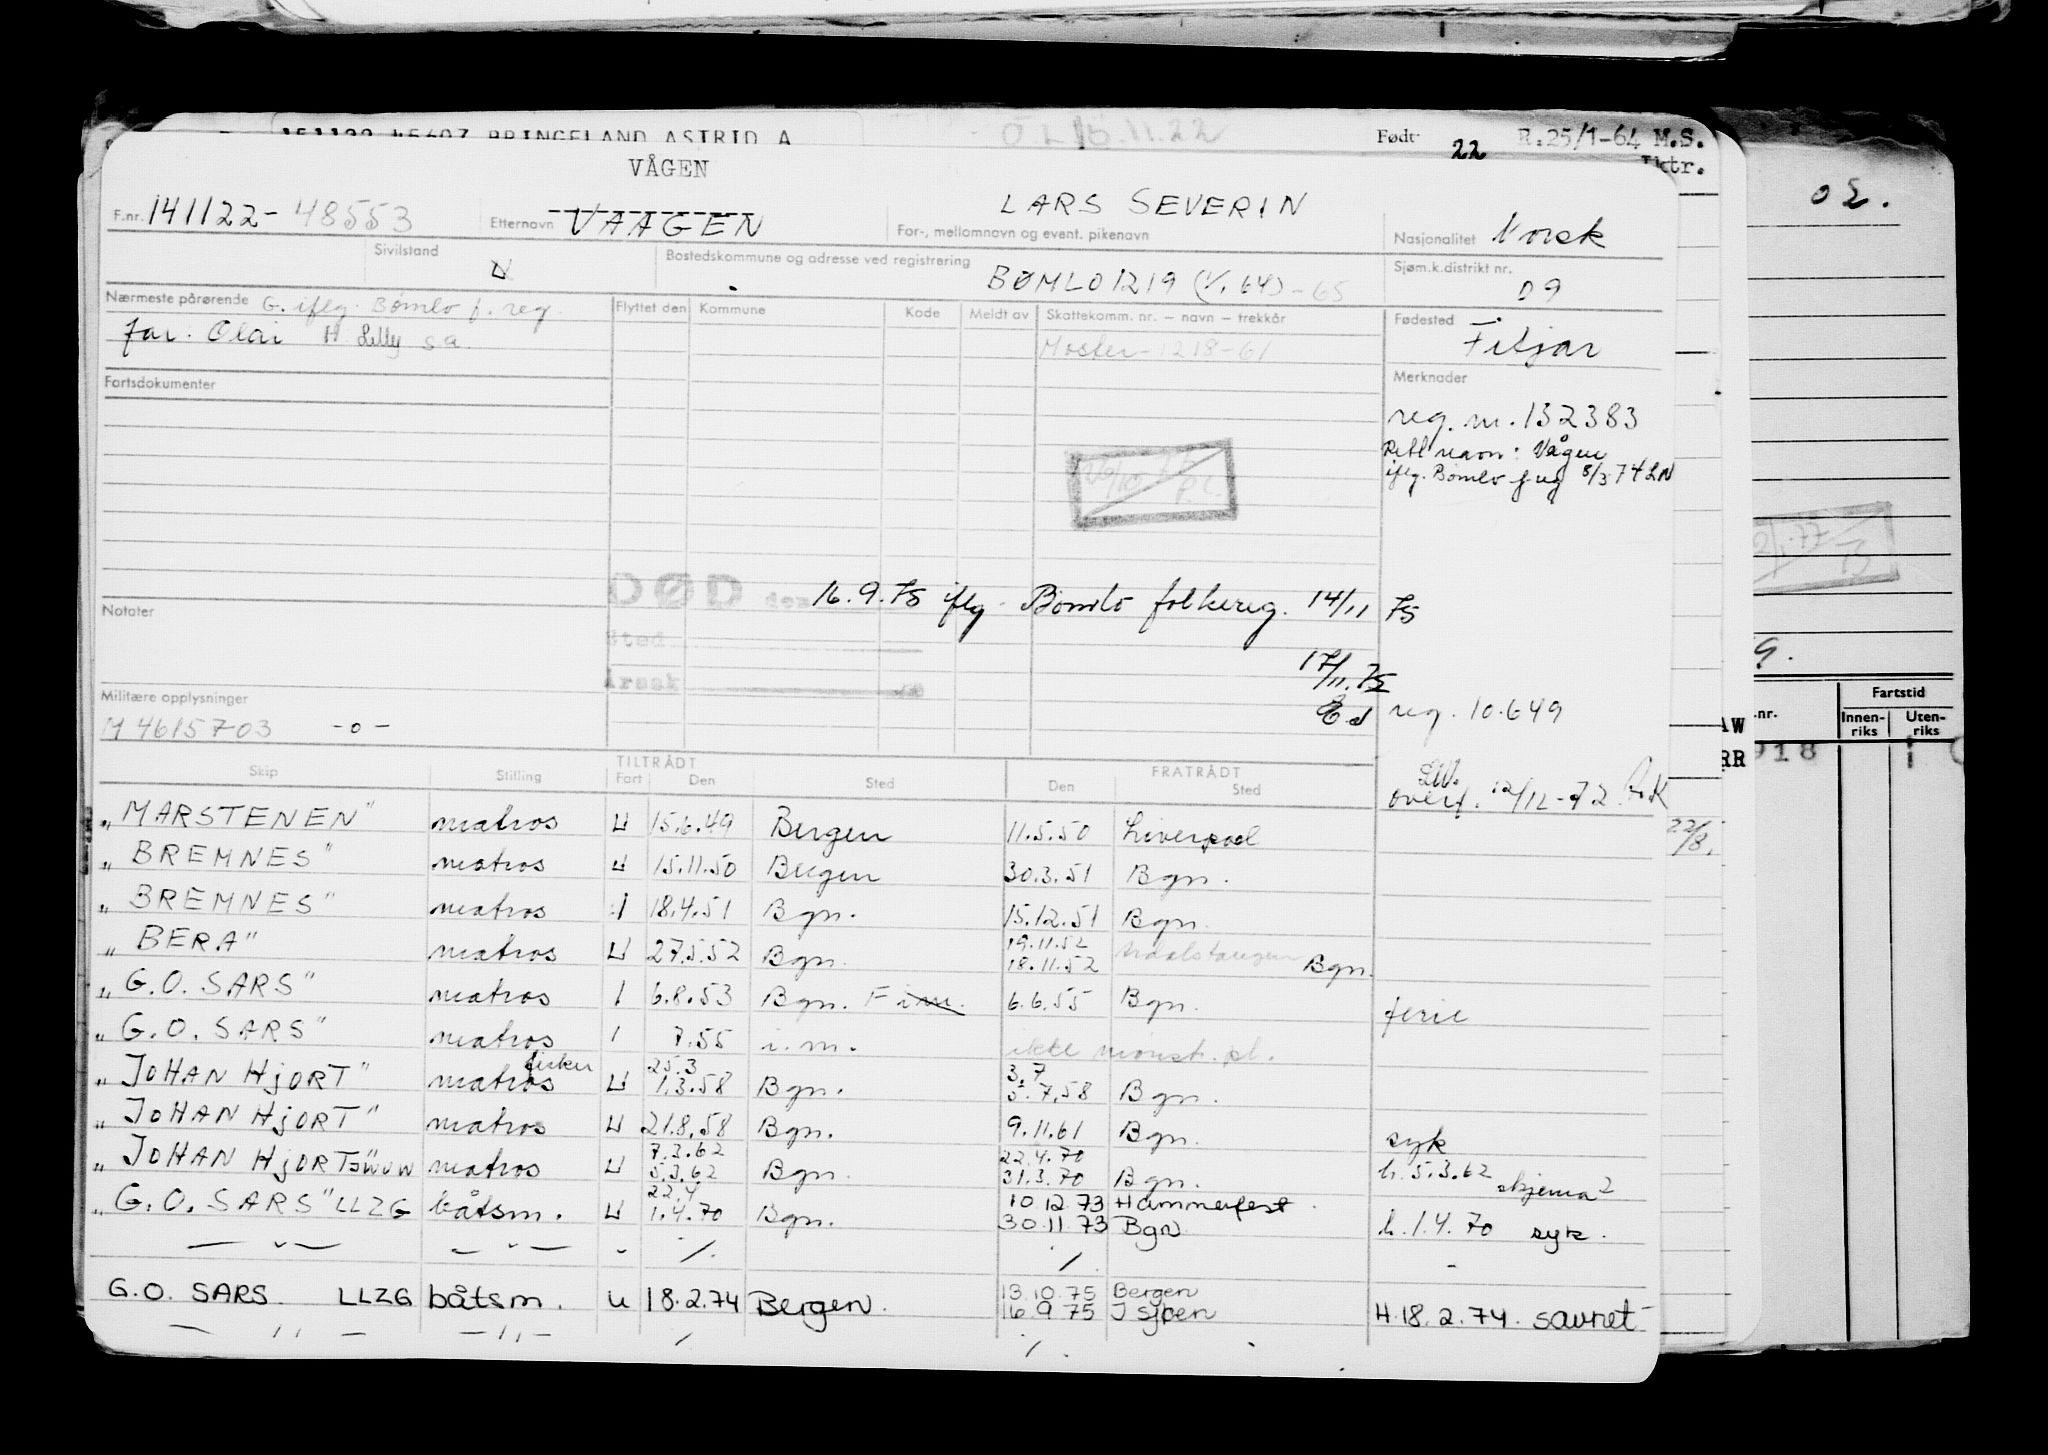 151122 45607 BRINGELAND ASTRID A
Født 22 R.25/1-64 M.S.
VÅGEN
02.
F.nr. 141122-48553 Etternavn VAAGEN LARS SEVERIN
For-, mellomnavn og event. pikenavn
Nasjonalitet Norsk
Sivilstand U
Bostedskommune og adresse ved registrering BØMLO 1219 (1/1 64) -65
Sjøm.k.distrikt nr. 09
Nærmeste pårørende G. iflg. Bømlo f. reg.
far. Olai H. Lilly s.a.
Flyttet den Kommune Kode Meldt av Skattekomm. nr. – navn – trekkår
Moster-1218-61
Fødested Fitjar
Fartsdokumenter
Merknader
reg. nr. 132383
Rett navn: Vågen
iflg. Bømlo f reg 8/3 74 LN
DØD den 16.9.75 iflg. Bømlo folkereg. 14/11 75
Notater
Sted
Årsak
17/11.75
Militære opplysninger
M 4615703 -o-
reg. 10.649
Skip Stilling TILTRÅDT FRATRÅDT
Fart Den Sted Den Sted
overf. 12/12-72
"MARSTENEN" matros U 15.6.49 Bergen 11.5.50 Liverpool
"BREMNES" matros U 15.11.50 Bergen 30.3.51 Bgn.
"BREMNES" matros I 18.4.51 Bgn. 15.12.51 Bgn.
"BERA" matros U 27.5.52 Bgn. 19.11.52
18.11.52 Årdalstangen Bgn.
"G.O. SARS" matros I 6.8.53 Bgn. F im. 6.6.55 Bgn. ferie
"G.O. SARS" matros I 7.55 i.m. ikke mønstr. pl.
"JOHAN HJORT" matros fisker U 25.3 1.3.58 Bgn. 3.7 5.7.58 Bgn.
"JOHAN HJORT" matros U 21.8.58 Bgn. 9.11.61 Bgn. syk
"JOHAN HJORT" matros U 7.3.62 5.3.62 Bgn. 22.4.70 31.3.70 Bgn. h. 5.3.62 skjema 2
"G.O. SARS" LLZG båtsm. U 22.4 1.4.70 Bgn. 10.12.73 Hammerfest
30.11.73 Bgn h. 1.4.70 syk.
— " — — " — " /. /. -
G.O. SARS. LLZG båtsm. u 18.2.74 Bergen. 13.10.75 Bergen
16.9.75 I sjøen H.18.2.74. savnet
— " — — " — /. /.
Fartstid
Innen-riks Uten-riks